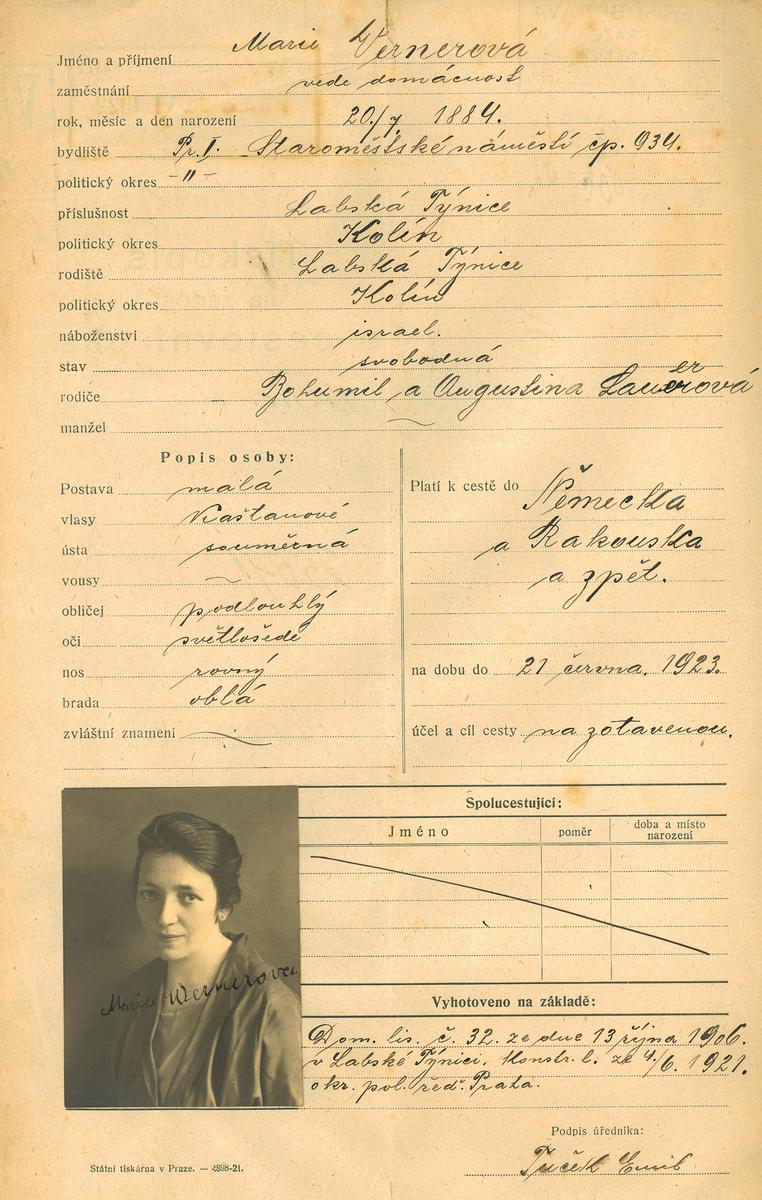 Jméno a příjmení Marie Vernerová
zaměstnání vede domácnost
rok, měsíc a den narození 20./7 1884.
bydliště Pr. I. Staroměstské náměstí čp. 934.
politický okres -"-
příslušnost Labská Týnice
politický okres Kolín
rodiště Labská Týnice
politický okres Kolín
náboženství israel.
stav svobodná
rodiče Bohumil a Augustina
manžel
Popis osoby:
Postava malá
vlasy Kaštanové
ústa souměrná
vousy
obličej podlouhlý
oči světlošedé
nos rovný
brada oblá
zvláštní znamení
Platí k cestě do Německa
a Rakouska
a zpět.
na dobu do 21 června. 1923.
účel a cíl cesty na zotavenou.
Spolucestující:
Jméno poměr doba a místo narození
Marie Wernerova
Vyhotoveno na základě:
Dom. lis. č. 32. ze dne 13 října 1906.
v Labské Týnici. Konstr. l. ze 4/6. 1921.
okr. pol. řed. Praha.
Podpis úředníka:
Tuček Emil
Státní tiskárna v Praze. — 4898-21.